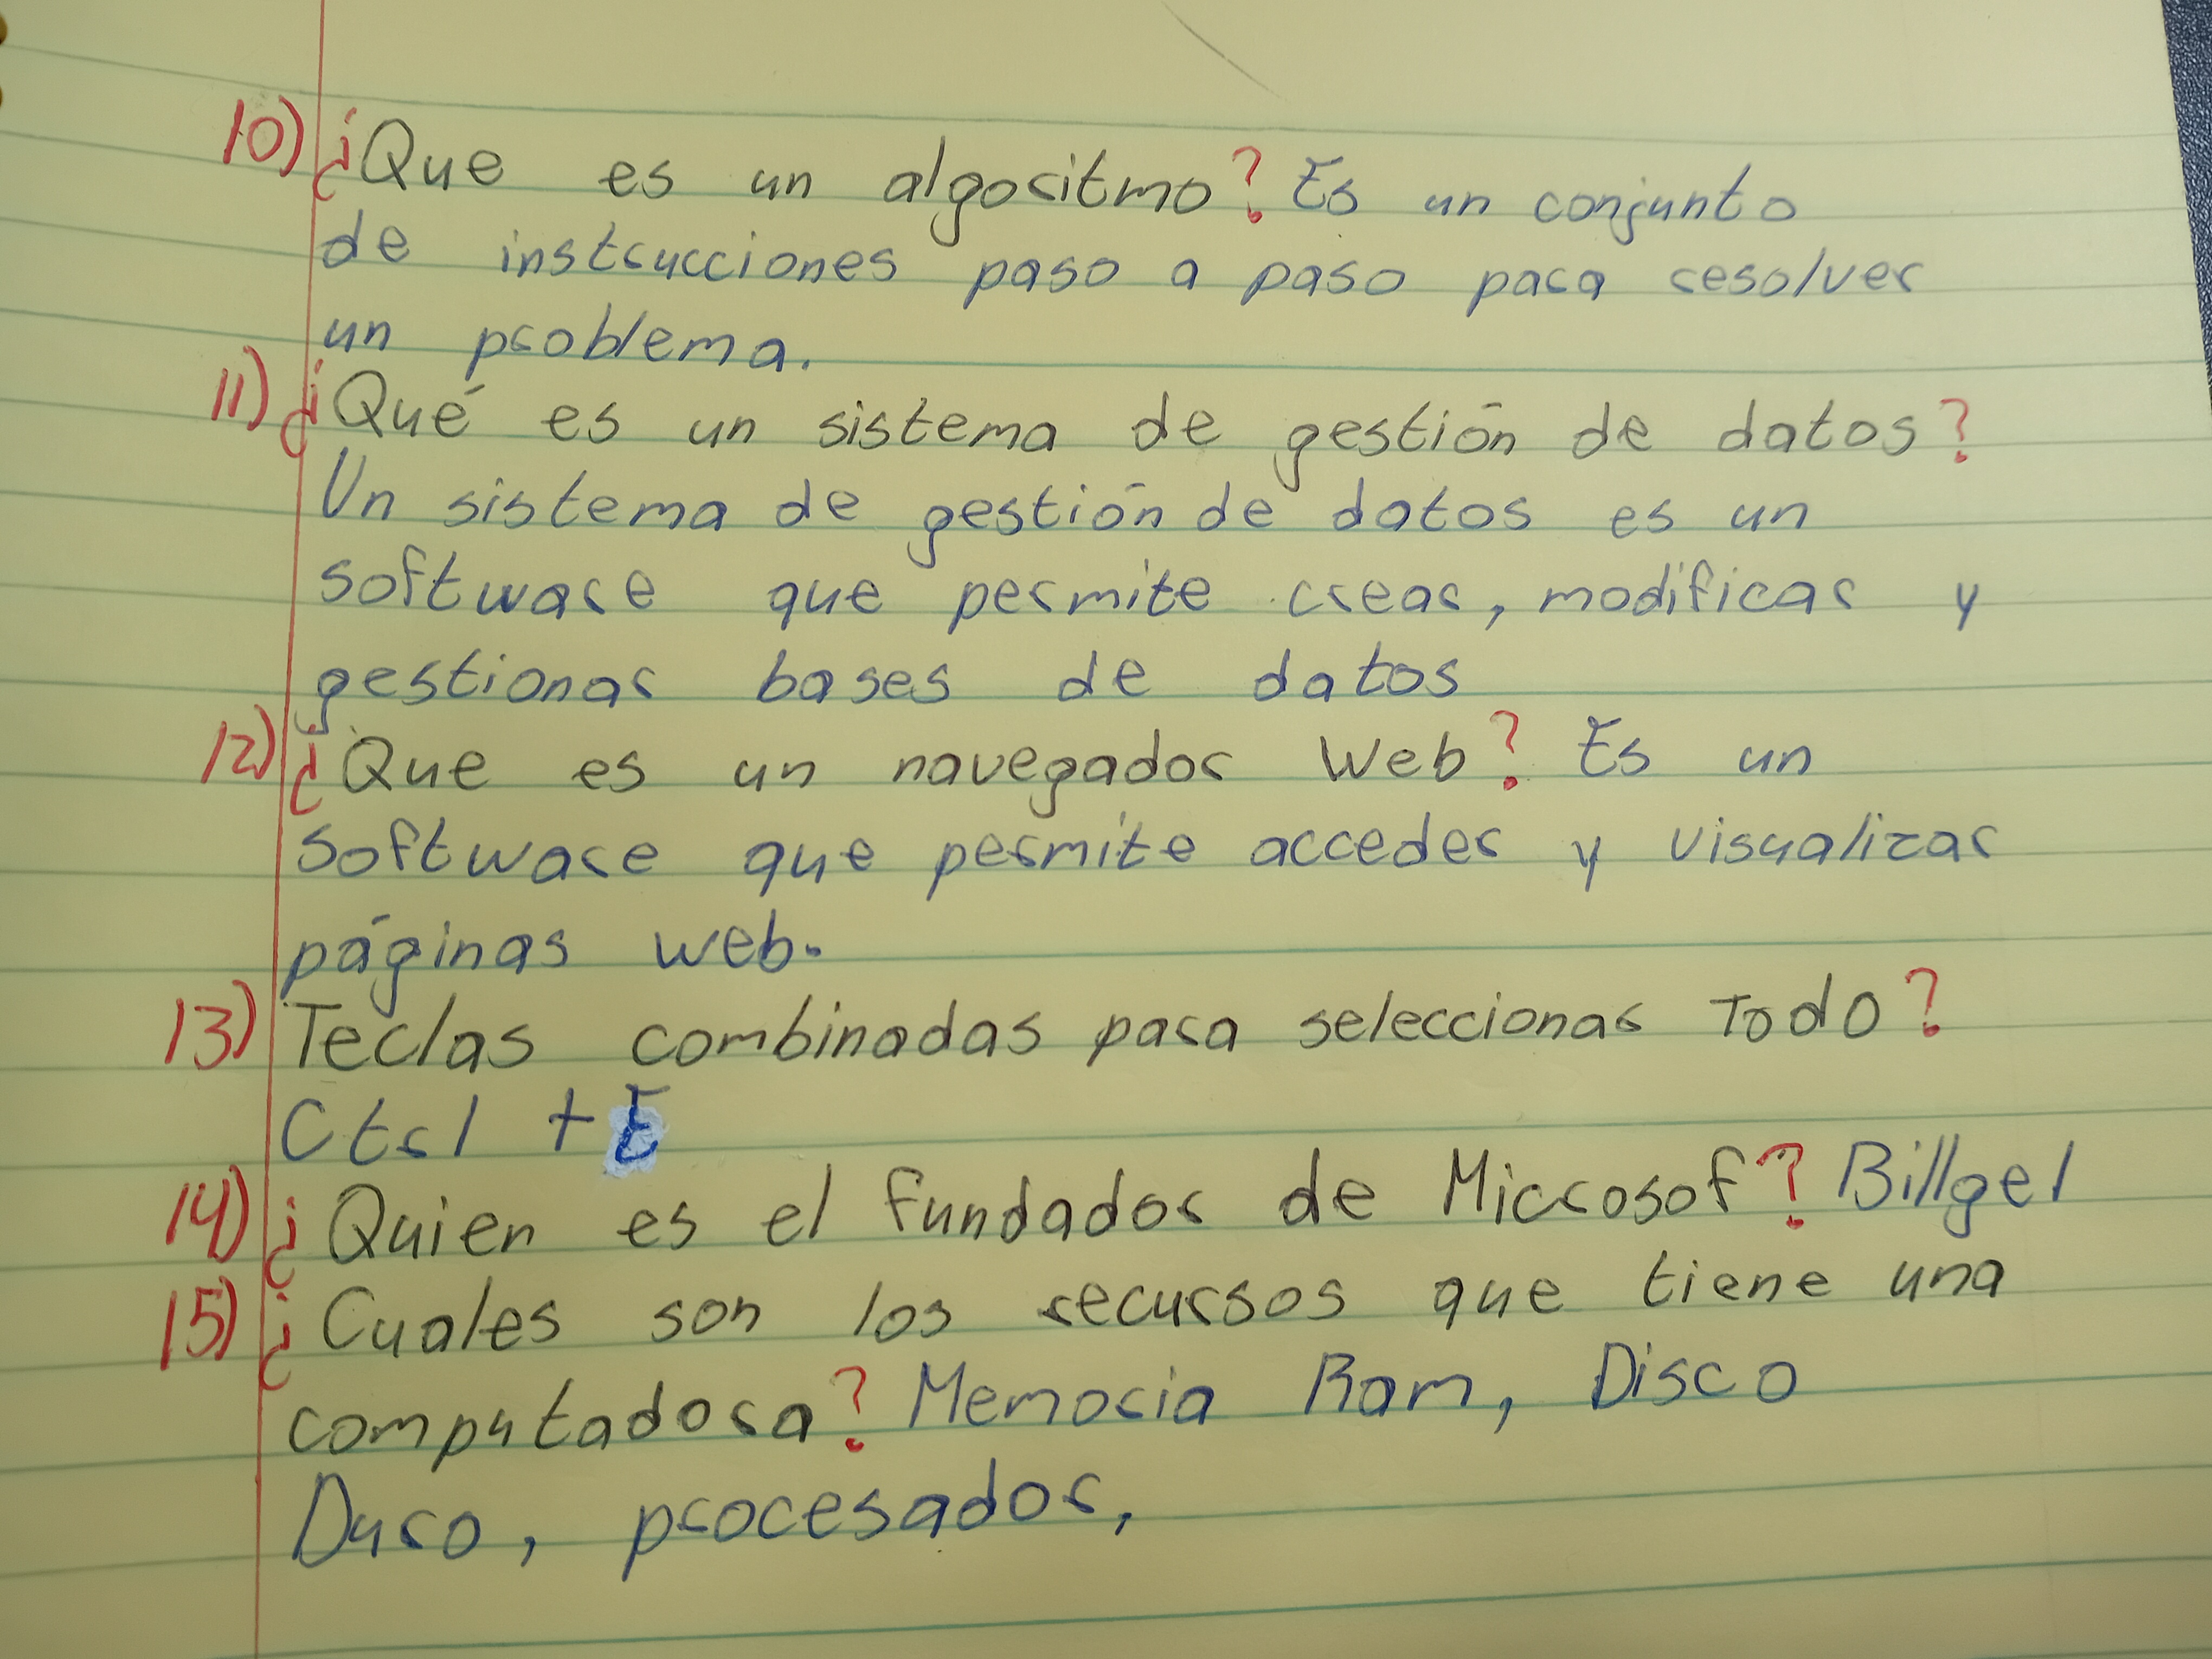 10) ¿Que es un algoritmo? Es un conjunto
de instrucciones paso a paso para resolver
un problema.
11) ¿Qué es un sistema de gestión de datos?
Un sistema de gestión de datos es un
software que permite crear, modificar y
gestionar bases de datos
12) ¿Que es un navegador Web? Es un
software que permite acceder y visualizar
páginas web.
13) Teclas combinadas para seleccionar Todo?
Ctrl + E
14) ¿Quien es el fundador de Microsof? Billgel
15) ¿Cuales son los recursos que tiene una
computadora? Memoria Ram, Disco
Duro, procesador,